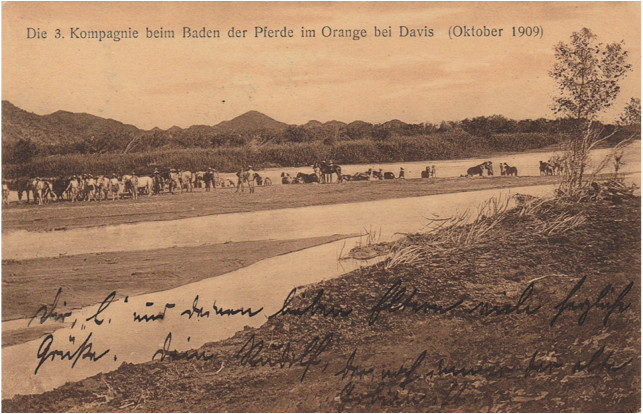 Die 3. Kompagnie beim Baden der Pferde im Orange bei Davis (Oktober 1909)
Dir, l. und deinen lieben Eltern viele herzliche
Grüße. Dein Rudolf, der noch immer der alte